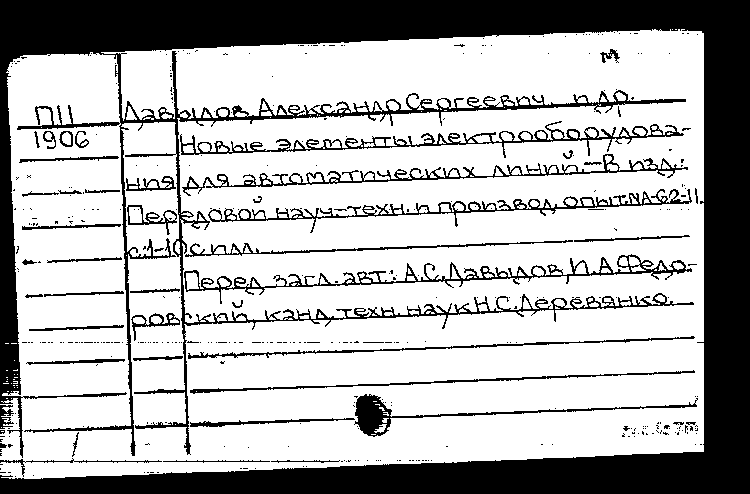 м
П11 Давыдов, Александр Сергеевич. и др.
1906 Новые элементы электрооборудова-
ния для автоматических линий.-В изд.:
Передовой науч.-техн. и производ. опыт. МА-62-11.
с.1-10 с илл.
Перед загл. авт.: А.С.Давыдов, И.А.Федо-
ровский, канд. техн. наук Н.С.Деревянко.